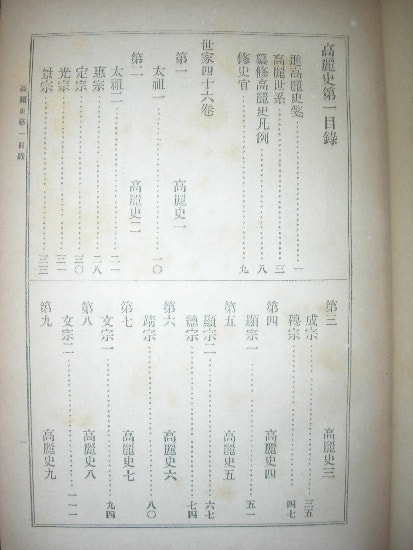 高麗史第一目錄
進高麗史箋……一
高麗世系……三
纂修高麗史凡例……八
修史官……九
世家四十六卷
第一 高麗史一
太祖一……一〇
第二 高麗史二
太祖二……二一
惠宗……二八
定宗……三〇
光宗……三一
景宗……三三
第三 高麗史三
成宗……三五
穆宗……四七
第四 高麗史四
顯宗一……五一
第五 高麗史五
顯宗二……六七
德宗……七四
第六 高麗史六
靖宗……八〇
第七 高麗史七
文宗一……九四
第八 高麗史八
文宗二……一一一
第九 高麗史九
高麗史第一目錄
一